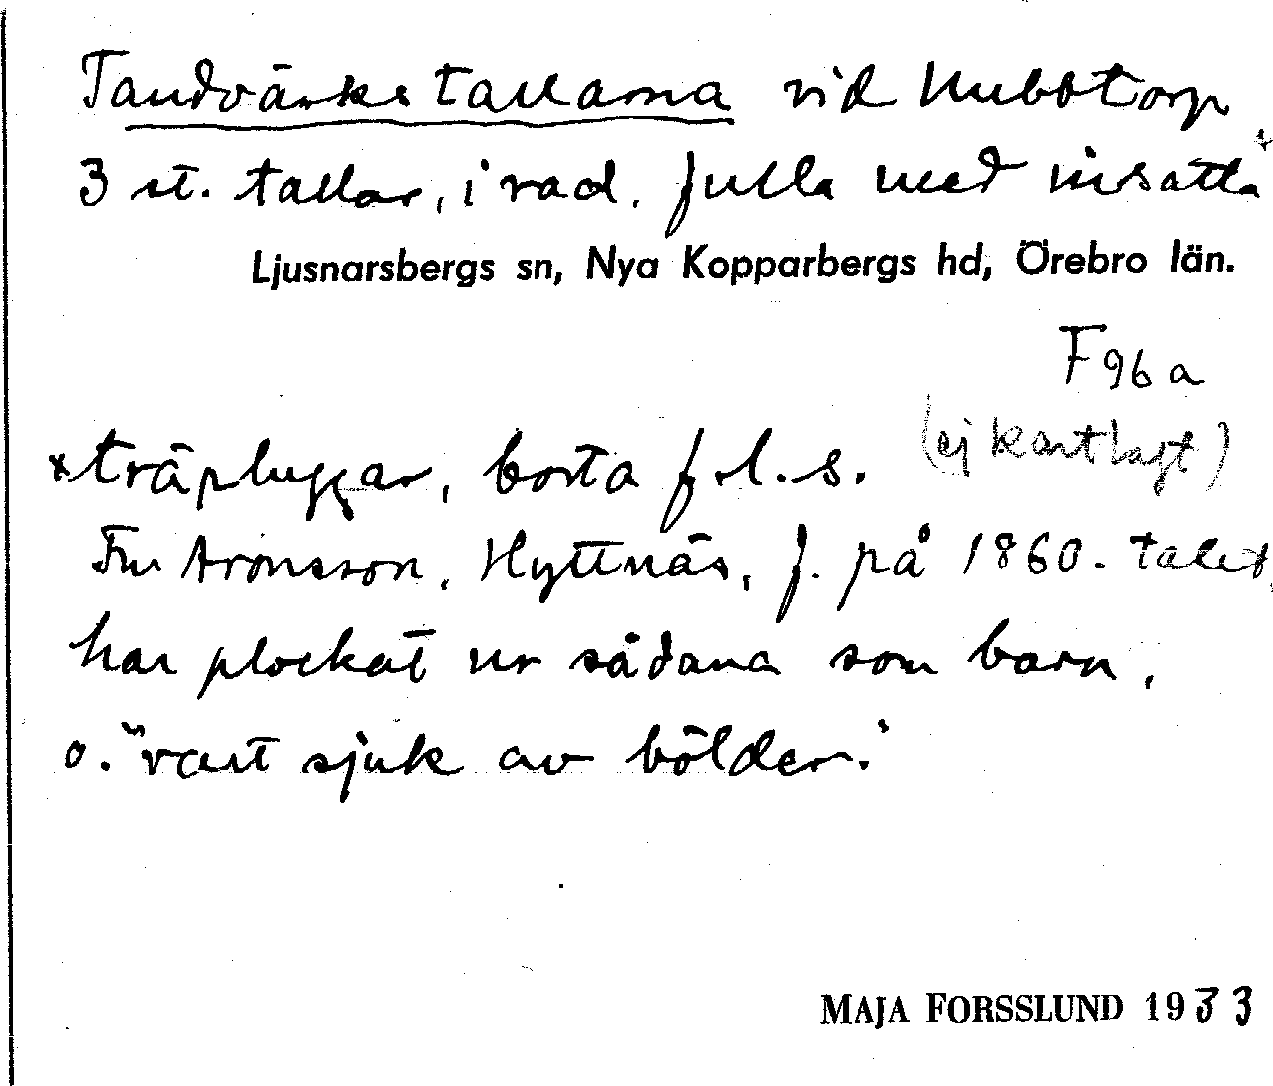 Tandvärkstallarna vid Nubbtorp
3 st. tallar, i rad. fulla med insatta x
Ljusnarsbergs sn, Nya Kopparbergs hd, Örebro län.
F 96 a
(ej kartlagt)
x träpluggar, borta f.l.s.
Fru Aronsson, Hyttnäs, f. på 1860-talet,
har plockat ur sådana som barn,
o. "vart sjuk av bölder."
MAJA FORSSLUND 1933